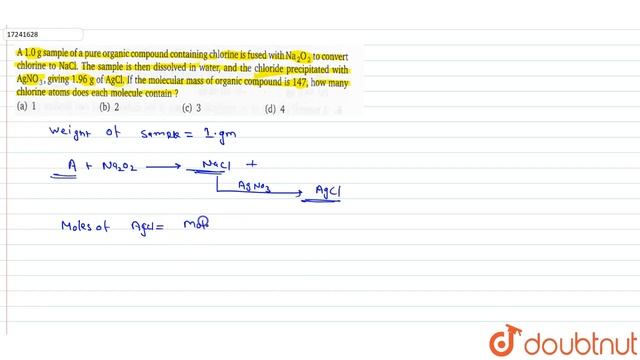 17241628
A 1.0 g sample of a pure organic compound containing chlorine is fused with Na₂O₂ to convert
chlorine to NaCl. The sample is then dissolved in water, and the chloride precipitated with
AgNO₃, giving 1.96 g of AgCl. If the molecular mass of organic compound is 147, how many
chlorine atoms does each molecule contain ?
(a) 1 (b) 2 (c) 3 (d) 4
Weight of sample = 1.gm
A + Na2O2 → NaCl +
AgNO3 → AgCl
Moles of AgCl =
doubtnut